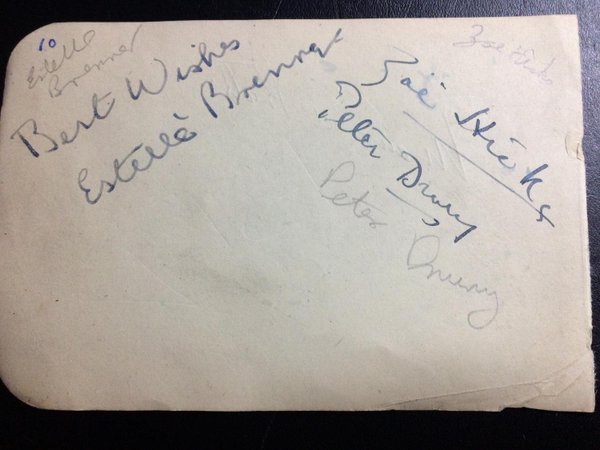 10
Estelle
Brenner
Best Wishes
Estelle Brenner
Zoë Hicks
Zoe Hicks
Peter Drury
Peter Drury